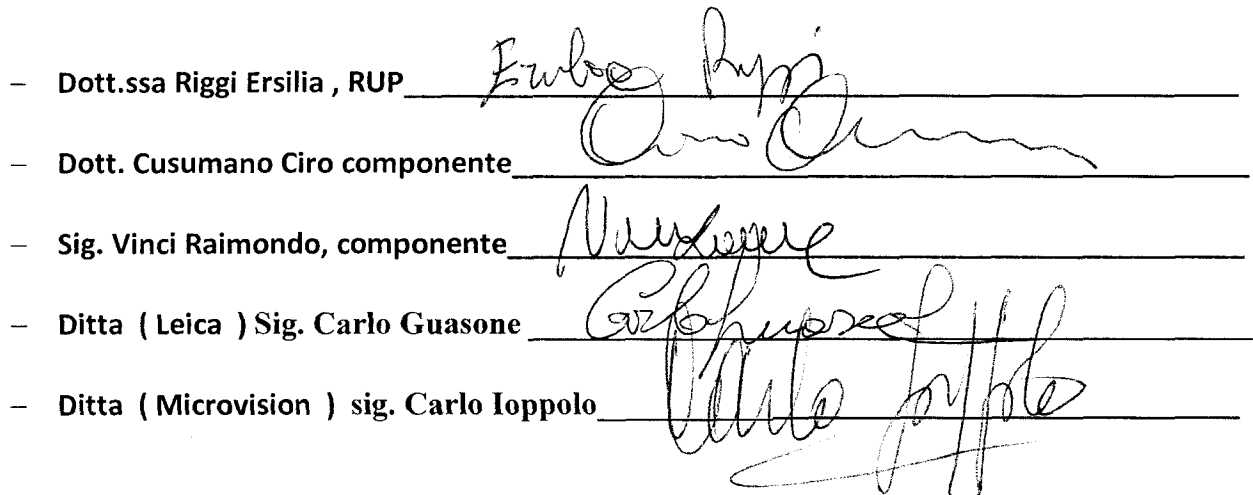 – Dott.ssa Riggi Ersilia , RUP Ersilia Riggi
– Dott. Cusumano Ciro componente Ciro
– Sig. Vinci Raimondo, componente
– Ditta ( Leica ) Sig. Carlo Guasone Carlo Guasone
– Ditta ( Microvision ) sig. Carlo Ioppolo Carlo Ioppolo